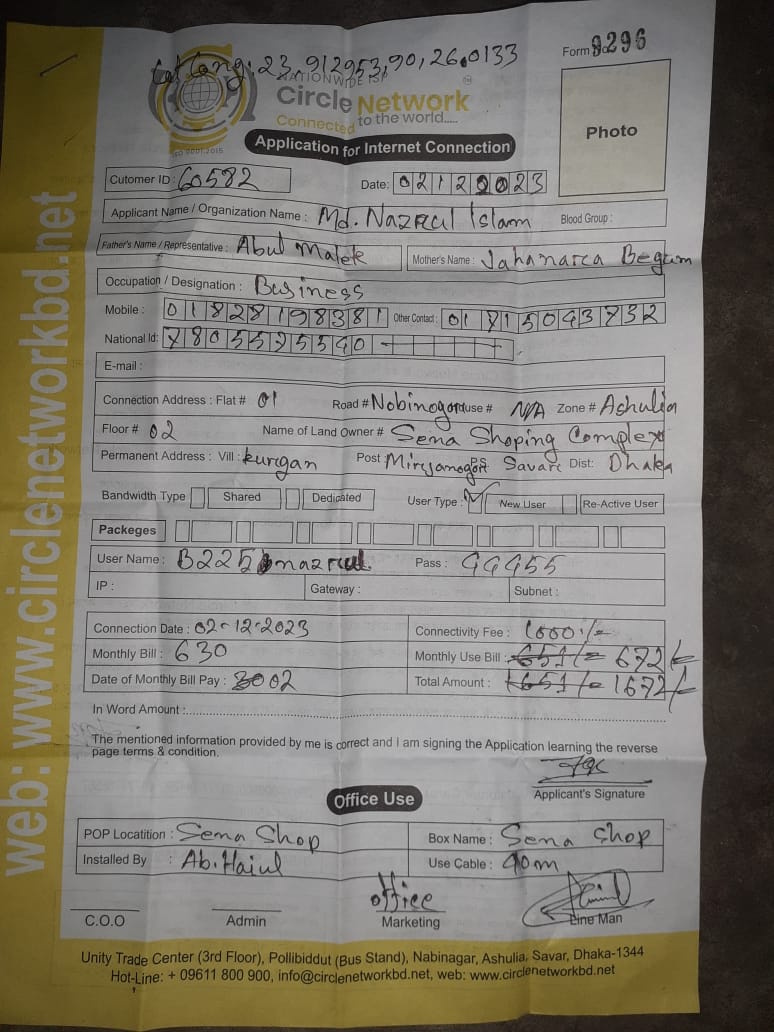 Lat Long: 23.912953,90,26.0133
Form 9296
NATIONWIDE ISP
Circle Network
Connected to the world.....
ISO 9001:2015
Photo
Application for Internet Connection
Cutomer ID : 60582
Date: 02122023
Applicant Name / Organization Name : Md. Nazrul Islam Blood Group :
Father's Name / Representative : Abul Malek Mother's Name : Jahanara Begum
Occupation / Designation : Business
Mobile : 01828198381 Other Contact : 01715043732
National Id: 7805595540
E-mail :
Connection Address : Flat # 01 Road # Nobinogor use # N/A Zone # Ashulia
Floor # 02 Name of Land Owner # Sena Shoping Complex
Permanent Address : Vill : kurgan Post P.S Savar Dist: Dhaka
Bandwidth Type Shared Dedicated User Type : New User Re-Active User
Packeges
User Name : B225 nazrul Pass :
IP : Gateway : Subnet :
Connection Date : 02-12-2023 Connectivity Fee : 1000/=
Monthly Bill : 630 Monthly Use Bill : 651/= 672/=
Date of Monthly Bill Pay : 02 Total Amount : 1651/= 1672/=
In Word Amount :
The mentioned information provided by me is correct and I am signing the Application learning the reverse
page terms & condition.
Applicant's Signature
Office Use
POP Locatition : Sena Shop Box Name : Sena Shop
Installed By : Ab. Haiul Use Cable : 90m
office
C.O.O Admin Marketing Line Man
Unity Trade Center (3rd Floor), Pollibiddut (Bus Stand), Nabinagar, Ashulia, Savar, Dhaka-1344
Hot-Line: + 09611 800 900, info@circlenetworkbd.net, web: www.circlenetworkbd.net
web: www.circlenetworkbd.net